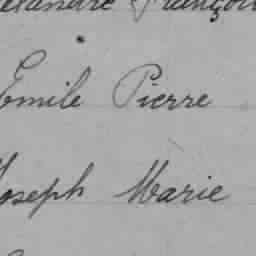 lexandre François
Emile Pierre
Joseph Marie